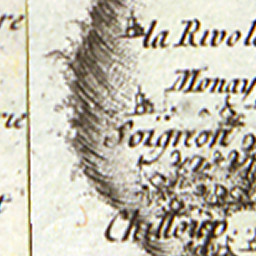 re
la Rivol
Monay
rie
Soignon
t
Chilloup